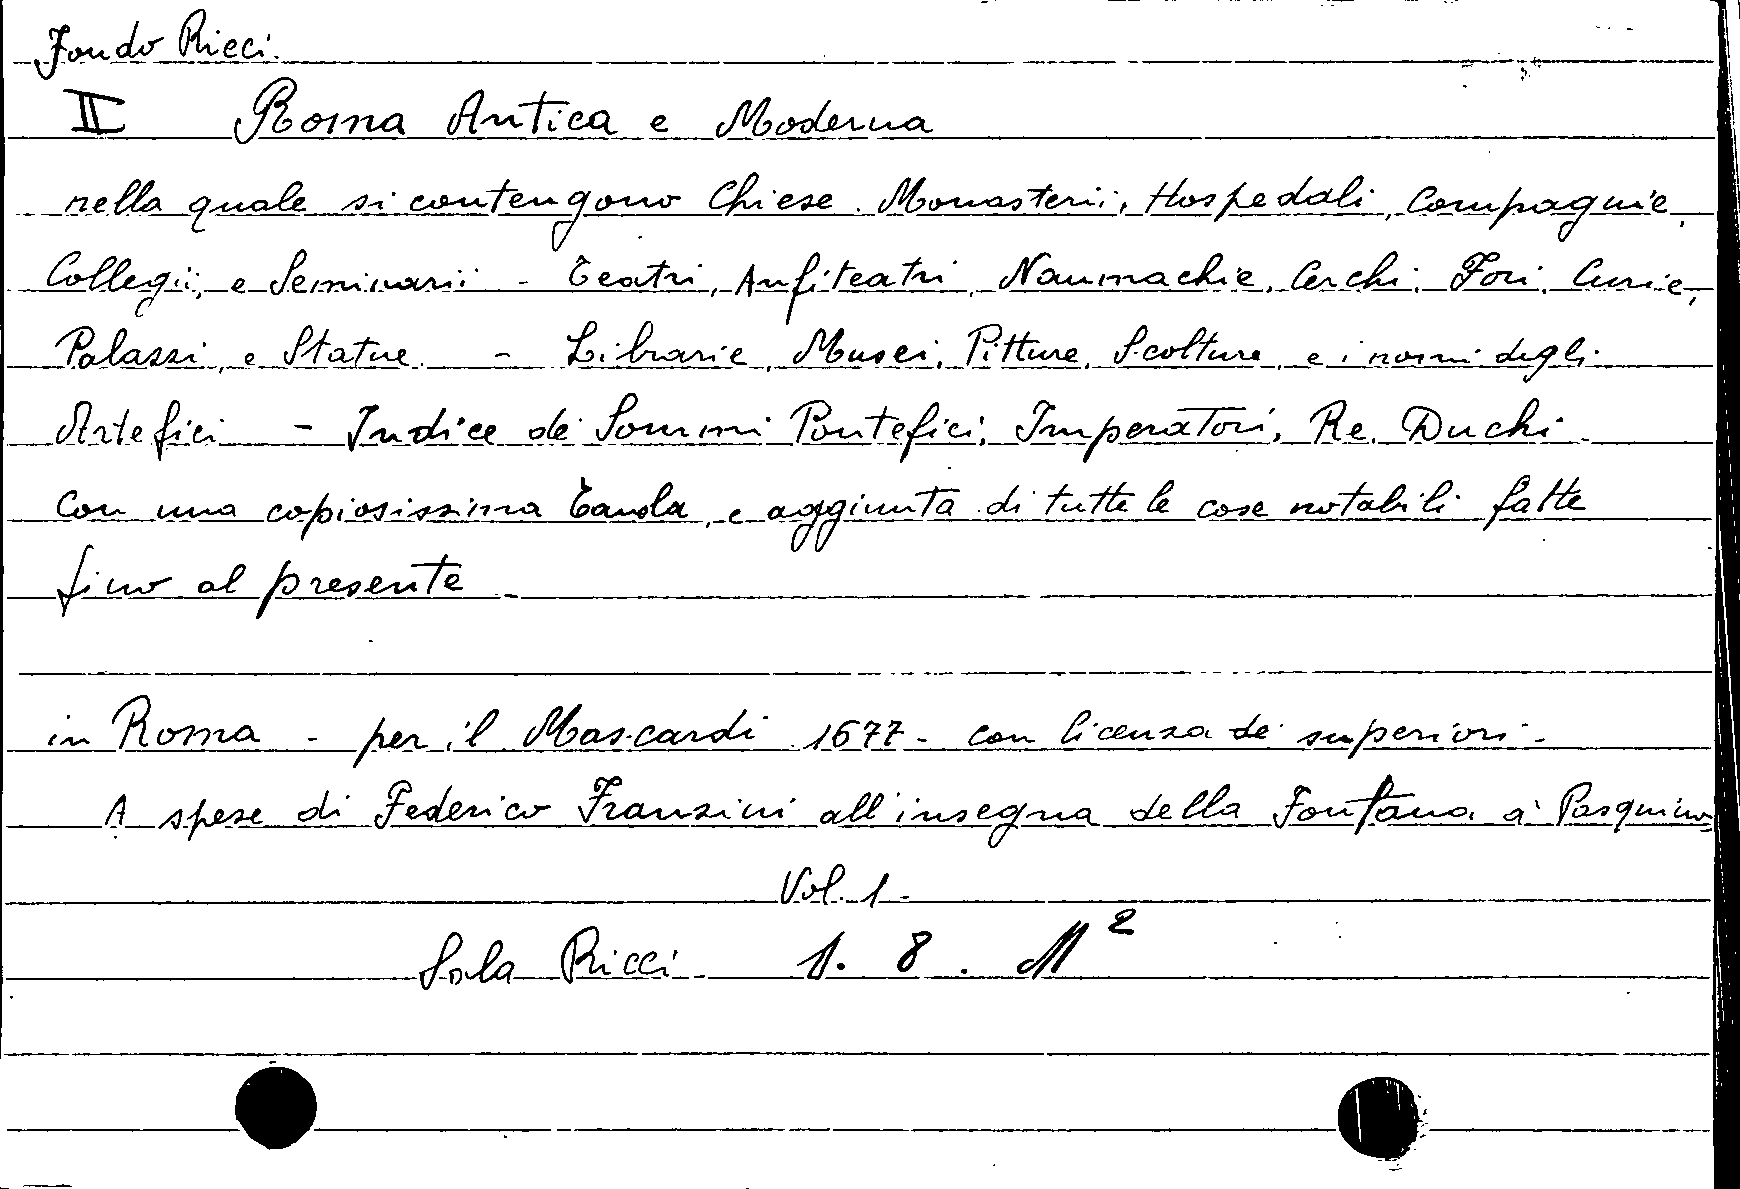 Fondo Ricci.
II Roma Antica e Moderna
nella quale si contengono Chiese. Monasterii, Hospedali, Compagnie,
Collegii, e Seminarii - Teatri, Anfiteatri, Naumachie, Cerchi, Fori, Curie,
Palazzi, e Statue. - Librarie, Musei, Pitture, Scolture, e i nomi degli
Artefici - Indice de' Sommi Pontefici, Imperatori, Re, Duchi.
Con una copiosissima Tavola, e aggiunta di tutte le cose notabili fatte
fino al presente -
in Roma - per il Mascardi 1677 - con licenza de' superiori -
A spese di Federico Franzini all'insegna della Fontana a' Pasquino
Vol. 1 -
Sala Ricci 1. 8. M²